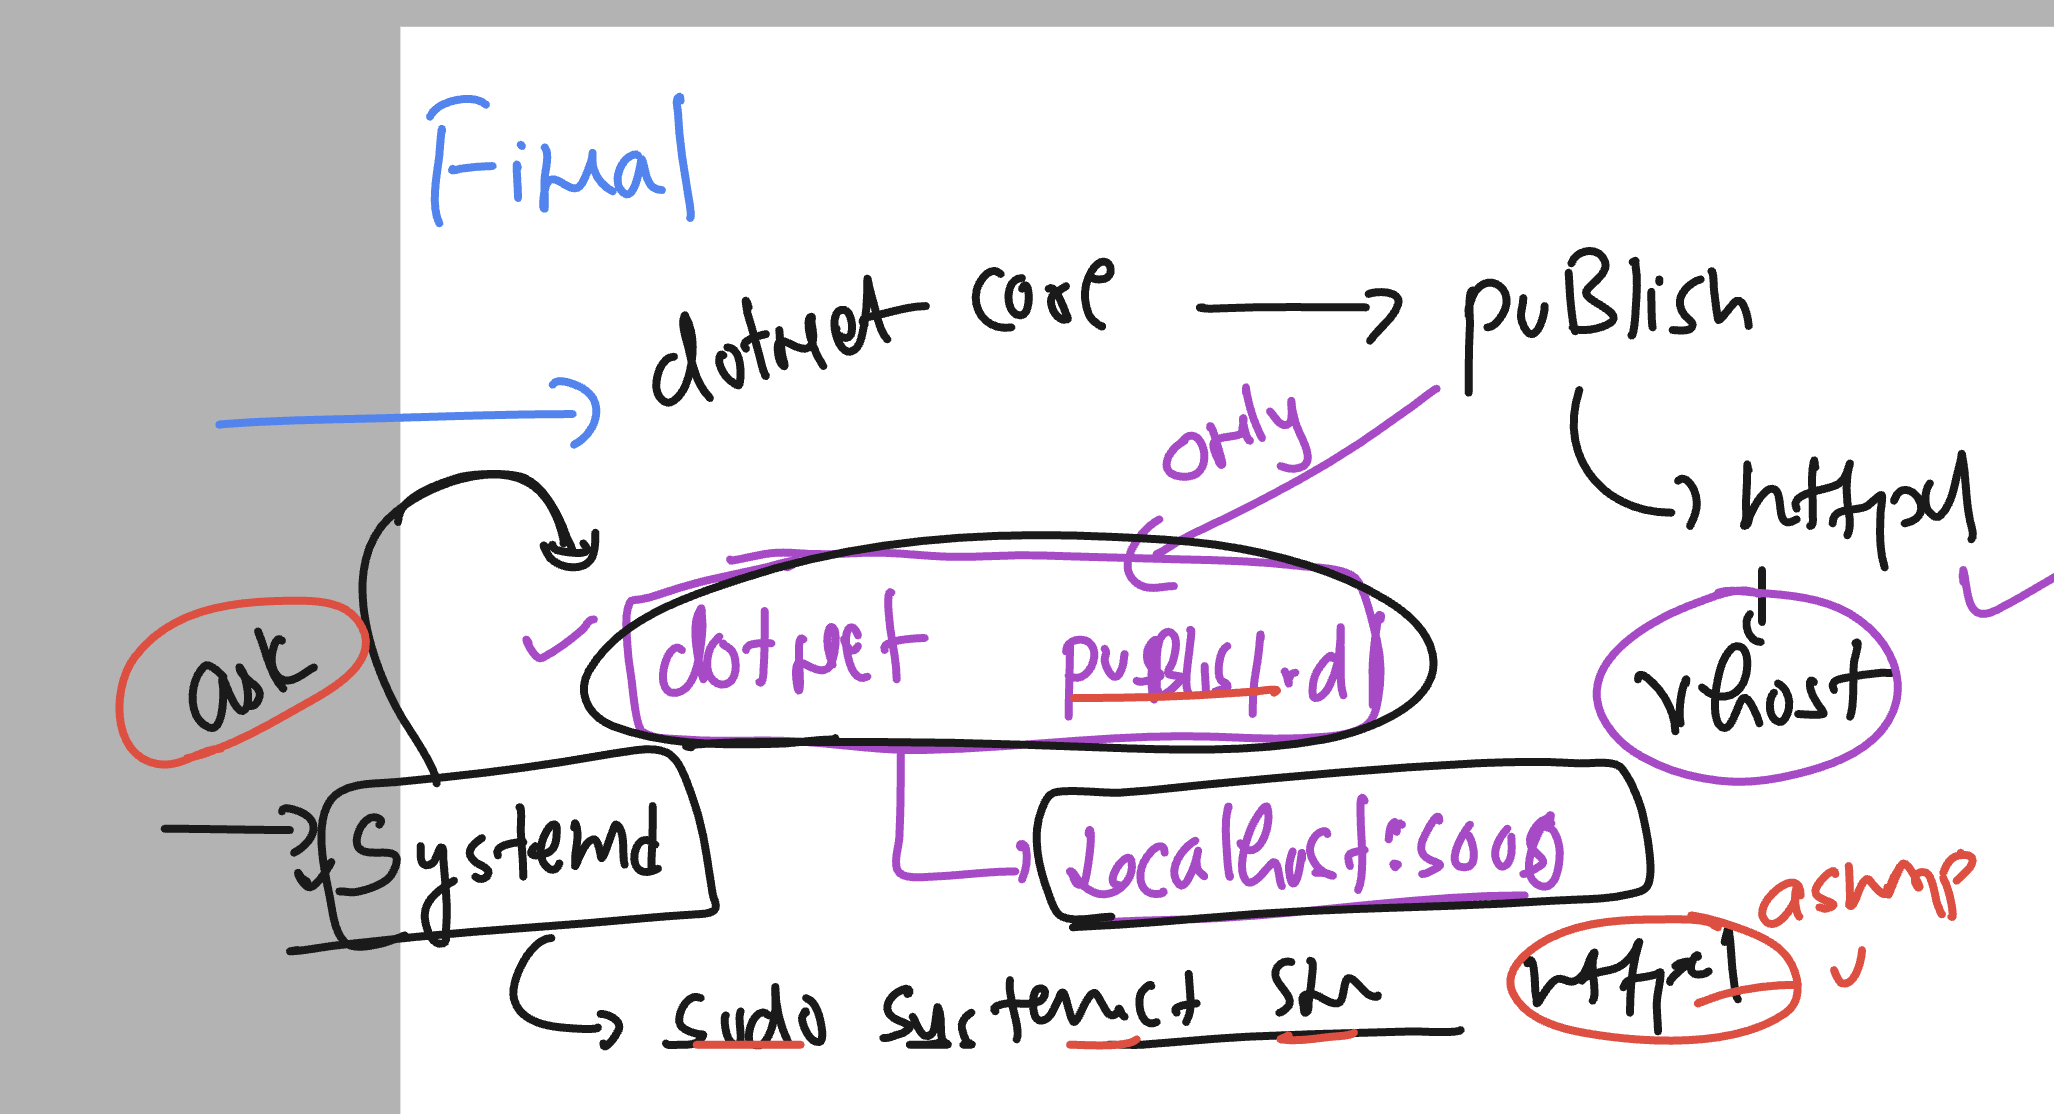 Final
dotnet core → puBlish
only
httpd
ask
dotnet publish.d
vhost
Systemd
Localhost:5000
asmp
sudo systemct str httpd